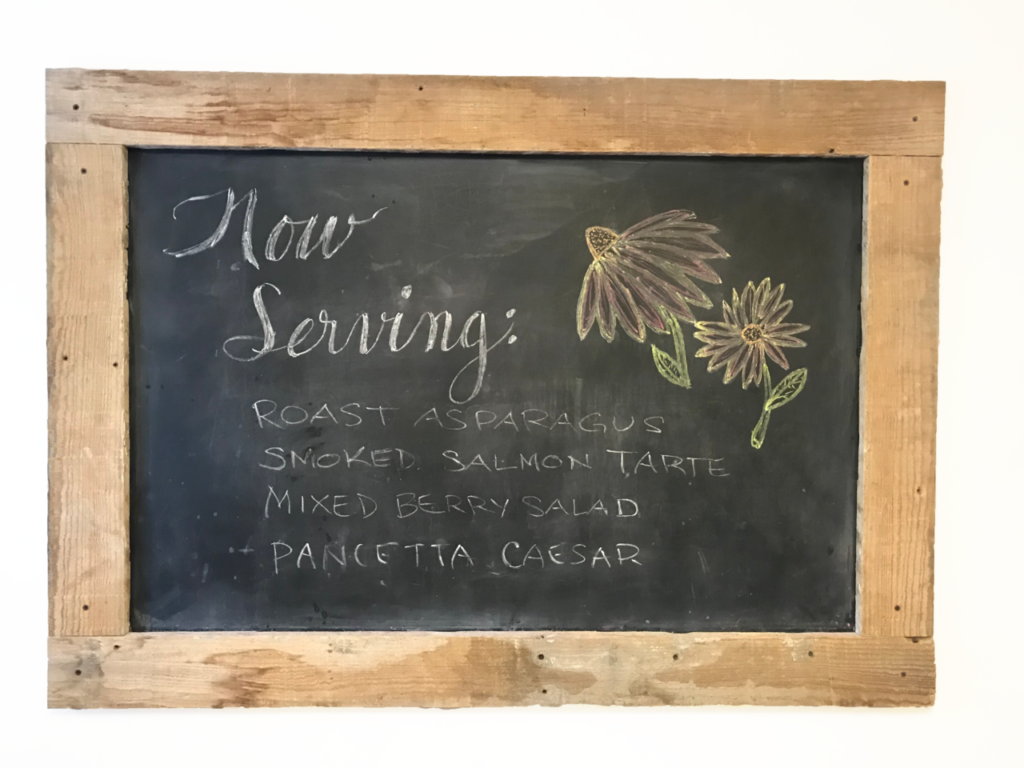 Now
Serving:
ROAST ASPARAGUS
SMOKED SALMON TARTE
MIXED BERRY SALAD
PANCETTA CAESAR